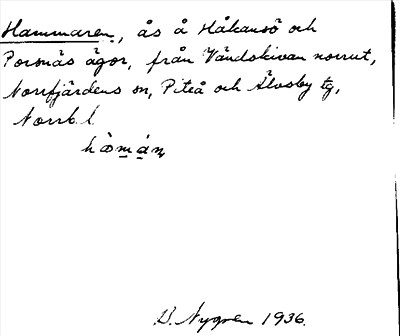 Hammaren, ås å Håkansö och
Porsnäs ägor, från Vändskivan norrut,
Norrfjärdens sn, Piteå och Älvsby tg,
Norrb. l.
B. Nygren 1936.